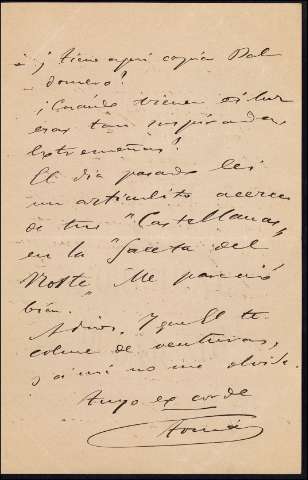 ¡ tiene aquí copia Bal
domero!
¡Cuándo vienen á luz
esas tan suspiradas
Extremeñas!
El dia pasado leí
un articulito acerca
de tus "Castellanas"
en la "Gaceta del
Norte" Me pareció
bien.
Adios. Y que El te
colme de venturas,
y á mí no me olvide.
Tuyo ex corde